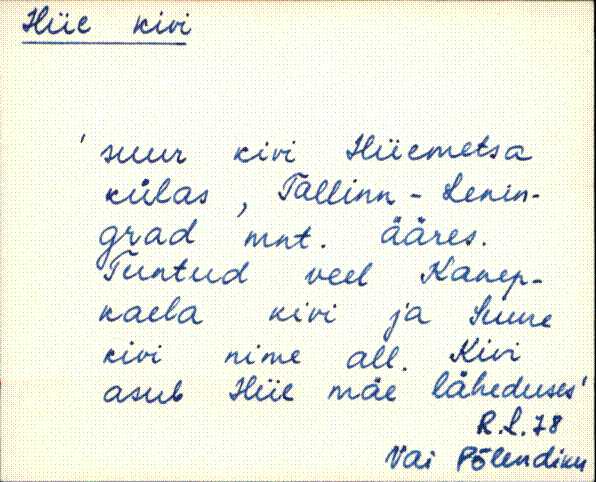 Hiie kivi
'suur kivi Hiiemetsa
külas, Tallinn - Lenin-
grad mnt. ääres.
Tuntud veel Kanep-
kaela kivi ja Suure
kivi nime all. Kivi
asub Hiie mäe läheduses'
R.L.78
Vai Põlendiku